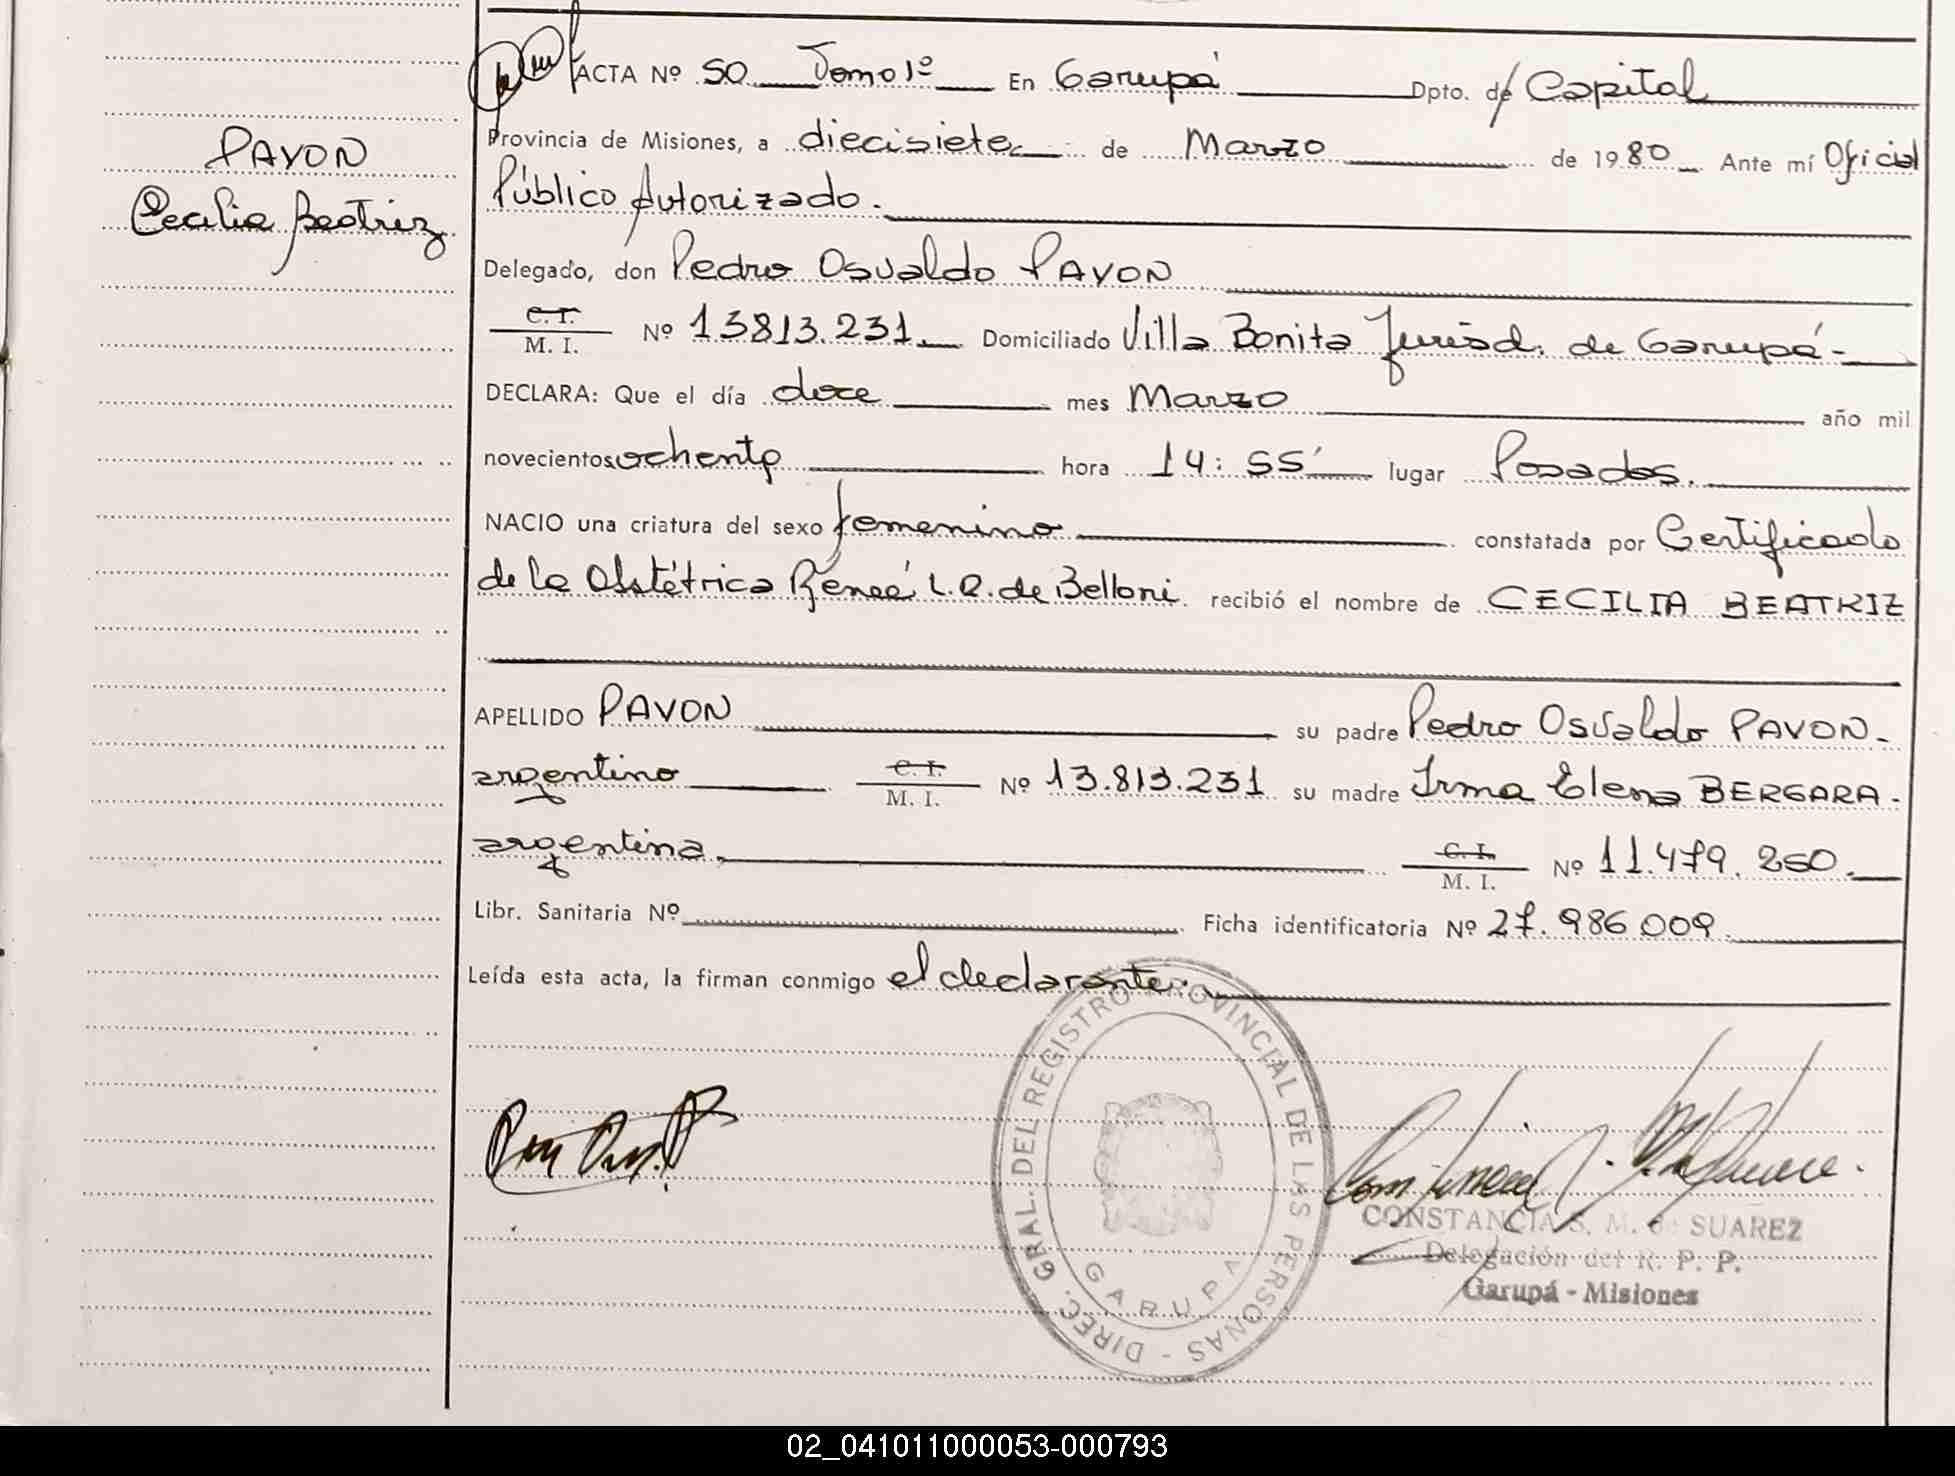 PAVON
Cecilia Beatriz
ACTA Nº 50 Tomo 1º En Garupá Dpto. de Capital
Provincia de Misiones, a diecisiete de Marzo de 1980 Ante mí Oficial
Público Autorizado.
Delegado, don Pedro Osvaldo PAVON
C. I.
M. I. Nº 13813.231. Domiciliado Villa Bonita Jurisd. de Garupá-
DECLARA: Que el día doce mes Marzo año mil
novecientos ochenta hora 14:55' lugar Posadas.
NACIO una criatura del sexo femenino constatada por Certificado
de la Obstétrica Reneé L.R. de Belloni recibió el nombre de CECILIA BEATRIZ
APELLIDO PAVON su padre Pedro Osvaldo PAVON-
argentino C. I.
M. I. Nº 13.813.231 su madre Irma Elena BERGARA-
argentina. C. I.
M. I. Nº 11.479.250.
Libr. Sanitaria Nº Ficha identificatoria Nº 27.986.009.
Leída esta acta, la firman conmigo el declarante.
DIREC. GRAL. DEL REGISTRO PROVINCIAL DE LAS PERSONAS -
GARUPA
CONSTANCIA S. M. de SUAREZ
Delegación del R. P. P.
Garupá - Misiones
02_041011000053-000793